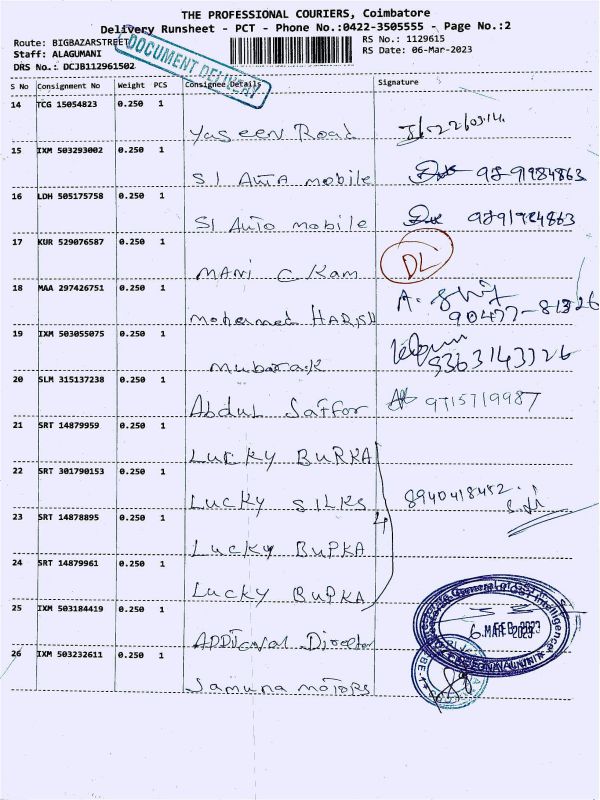 THE PROFESSIONAL COURIERS, Coimbatore
Delivery Runsheet - PCT - Phone No.:0422-3505555 - Page No.:2
Route: BIGBAZARSTREET
RS No.: 1129615
Staff: ALAGUMANI
RS Date: 06-Mar-2023
DRS No.: DCJB112961502
DOCUMENT DELIVERY
S No Consignment No Weight PCS Consignee Details Signature
14 TCG 15054823 0.250 1
Yaseen Road
15 IXM 503293002 0.250 1
SI AUTA mobile
16 LDH 505175758 0.250 1
SI AUTO mobile
17 KUR 529076587 0.250 1
MANI C Kam DL
18 MAA 297426751 0.250 1
Mohamed HARISH 90477-81326
19 IXM 503055075 0.250 1
Mubarak 9363143326
20 SLM 315137238 0.250 1
Abdul Saffor 9715719987
21 SRT 14879959 0.250 1
LUCKY BURKA
22 SRT 301790153 0.250 1
LUCKY SILKS 8940418452
23 SRT 14878895 0.250 1
4
LUCKY BUPKA
24 SRT 14879961 0.250 1
LUCKY BUPKA
25 IXM 503184419 0.250 1
Director
26 IXM 503232611 0.250 1
Jamuna MOTORS